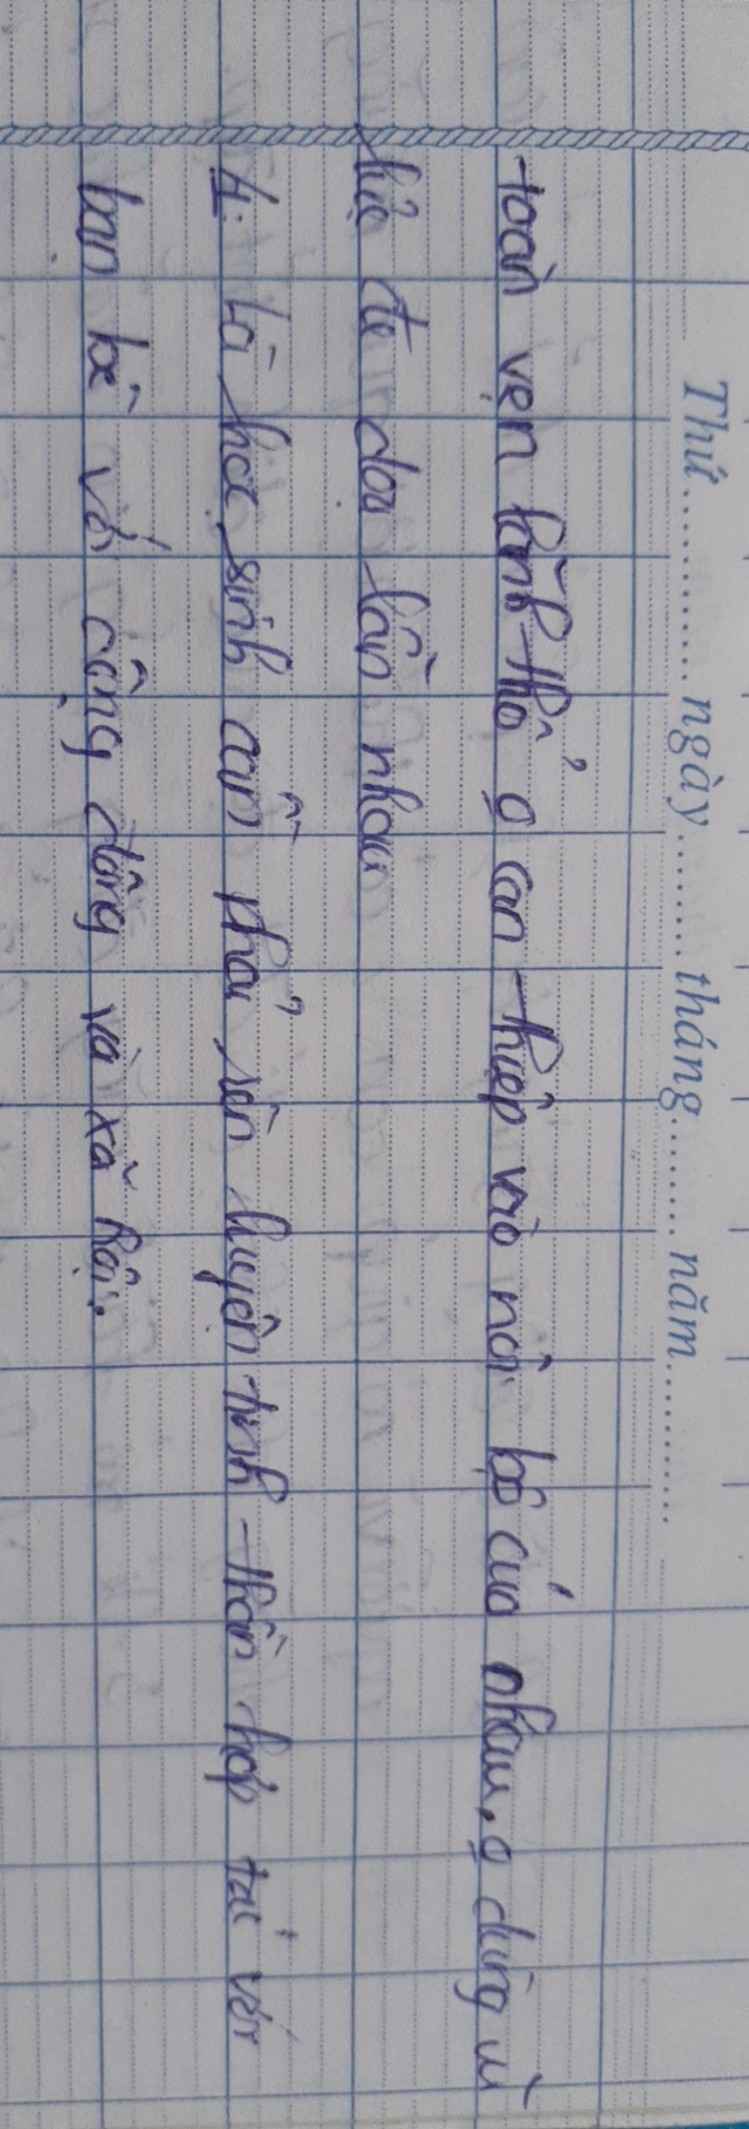 Thứ.............ngày.........tháng.........năm............
toàn vẹn lãnh thổ o can thiệp vào nội bộ của nhau, o dùng vũ
lực đe dọa lẫn nhau
4: Là học sinh cần phải rèn luyện tinh thần hợp tác với
bạn bè với cộng đồng và xã hội.